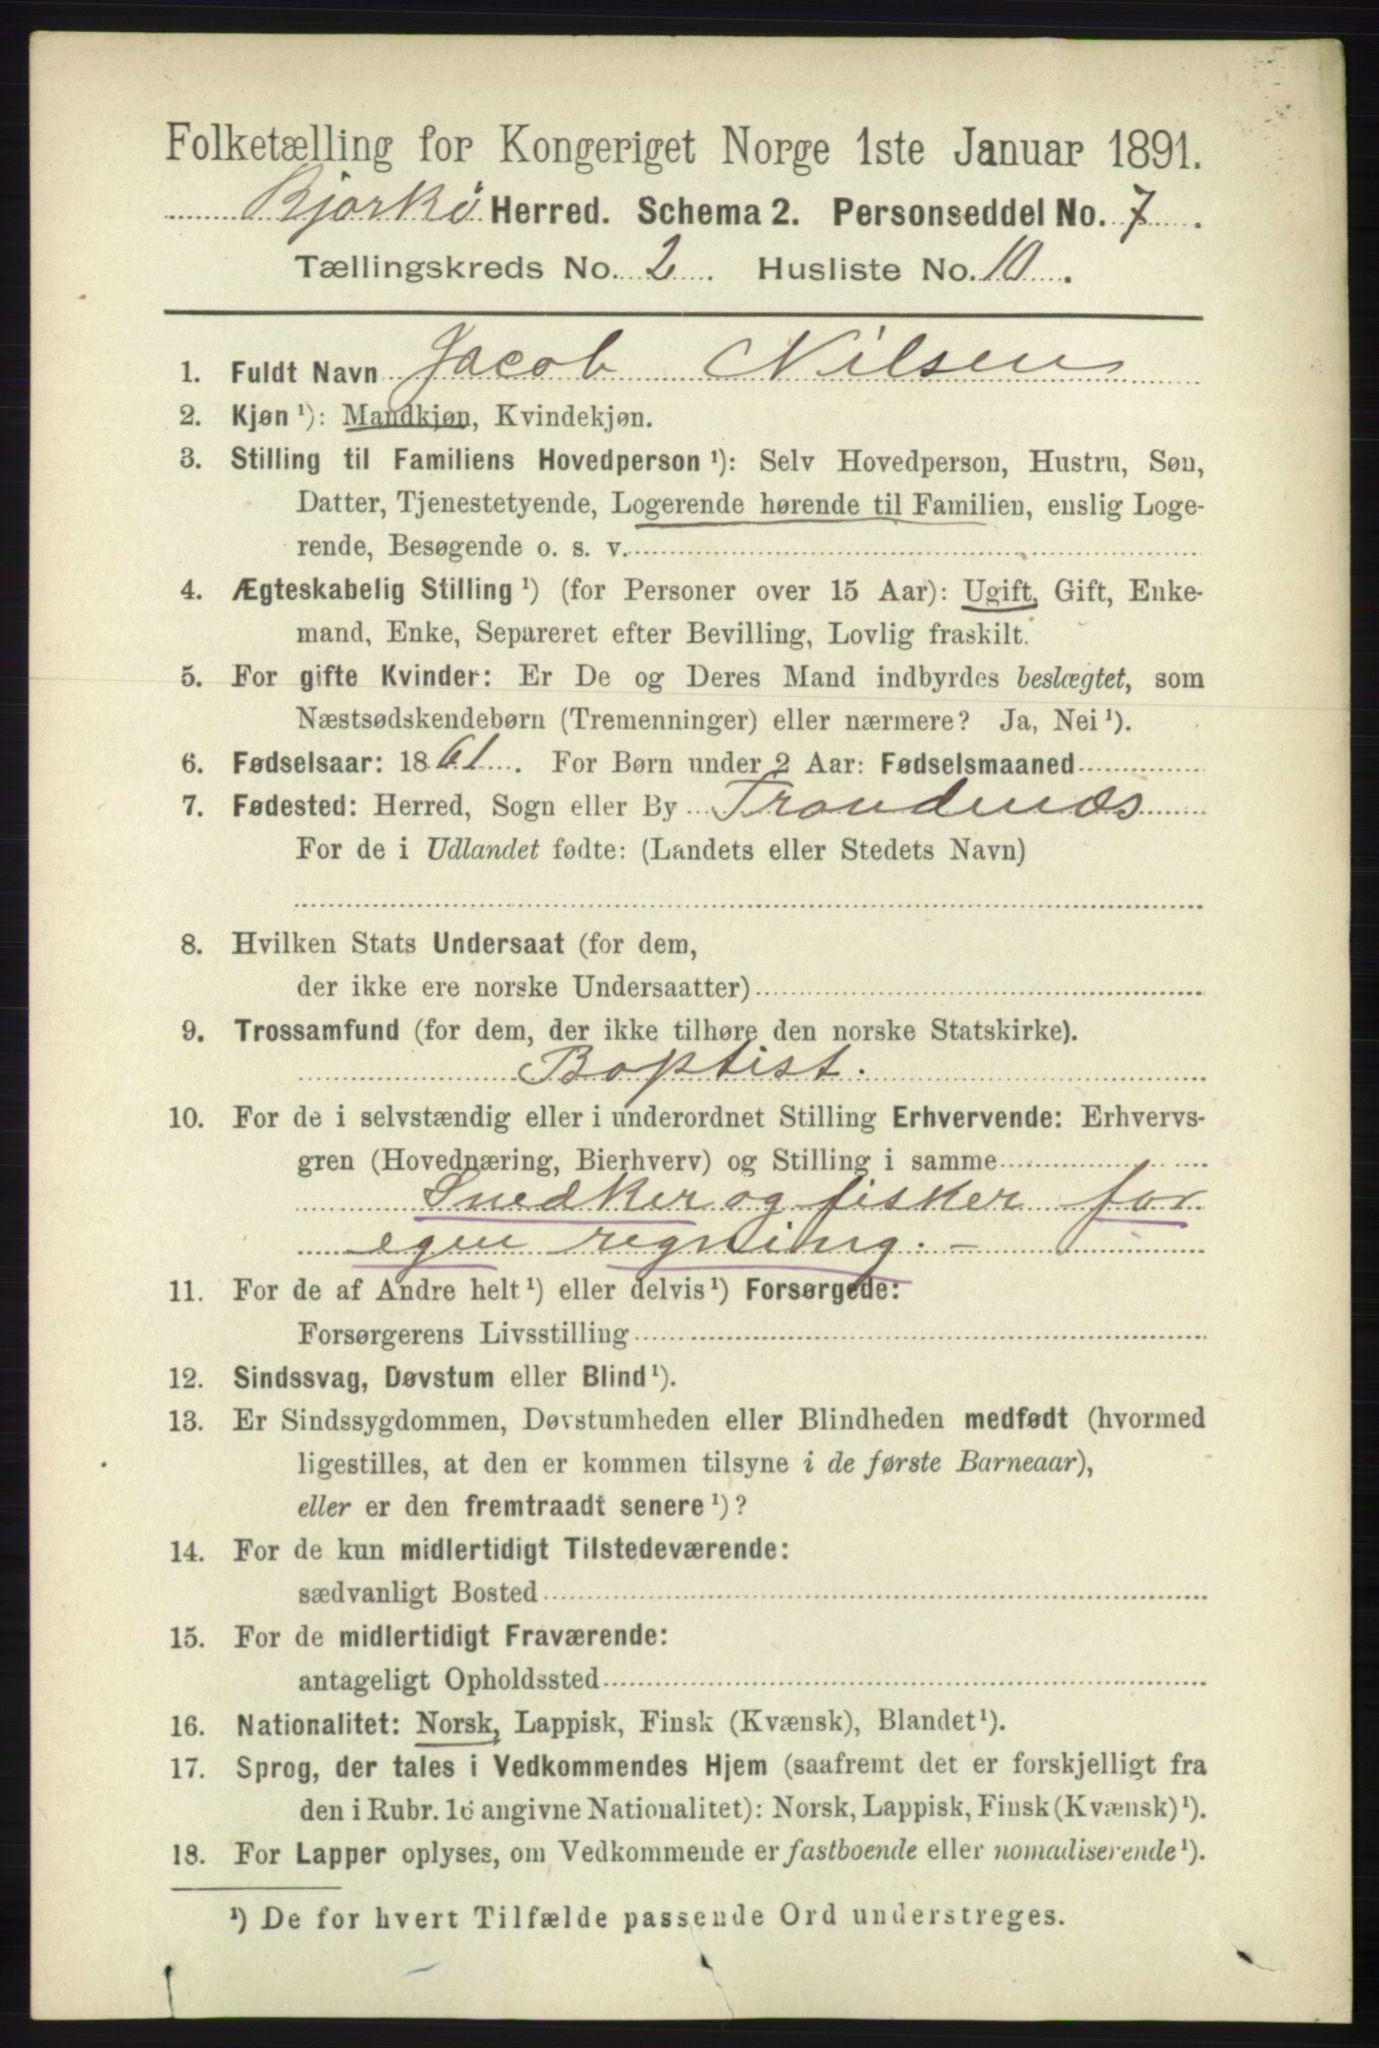 Folketælling for Kongeriget Norge 1ste Januar 1891.
Bjarkö Herred. Schema 2. Personseddel No. 7.
Tællingskreds No. 2. Husliste No. 10.
1. Fuldt Navn Jacob Nilsen
2. Kjøn ¹): Mandkjøn, Kvindekjøn.
3. Stilling til Familiens Hovedperson ¹): Selv Hovedperson, Hustru, Søn,
Datter, Tjenestetyende, Logerende hørende til Familien, enslig Loge-
rende, Besøgende o. s. v.
4. Ægteskabelig Stilling ¹) (for Personer over 15 Aar): Ugift, Gift, Enke-
mand, Enke, Separeret efter Bevilling, Lovlig fraskilt.
5. For gifte Kvinder: Er De og Deres Mand indbyrdes beslægtet, som
Næstsødskendebørn (Tremenninger) eller nærmere? Ja, Nei ¹).
6. Fødselsaar: 1861. For Børn under 2 Aar: Fødselsmaaned
7. Fødested: Herred, Sogn eller By Trondenæs
For de i Udlandet fødte: (Landets eller Stedets Navn)
8. Hvilken Stats Undersaat (for dem,
der ikke ere norske Undersaatter)
9. Trossamfund (for dem, der ikke tilhøre den norske Statskirke).
Baptist.
10. For de i selvstændig eller i underordnet Stilling Erhvervende: Erhvervs-
gren (Hovednæring, Bierhverv) og Stilling i samme
Snedker og fisker for
egen regning. -
11. For de af Andre helt ¹) eller delvis ¹) Forsørgede:
Forsørgerens Livsstilling
12. Sindssvag, Døvstum eller Blind ¹).
13. Er Sindssygdommen, Døvstumheden eller Blindheden medfødt (hvormed
ligestilles, at den er kommen tilsyne i de første Barneaar),
eller er den fremtraadt senere ¹)?
14. For de kun midlertidigt Tilstedeværende:
sædvanligt Bosted
15. For de midlertidigt Fraværende:
antageligt Opholdssted
16. Nationalitet: Norsk, Lappisk, Finsk (Kvænsk), Blandet ¹).
17. Sprog, der tales i Vedkommendes Hjem (saafremt det er forskjelligt fra
den i Rubr. 16 angivne Nationalitet): Norsk, Lappisk, Finsk (Kvænsk) ¹).
18. For Lapper oplyses, om Vedkommende er fastboende eller nomadiserende ¹).
¹) De for hvert Tilfælde passende Ord understreges.